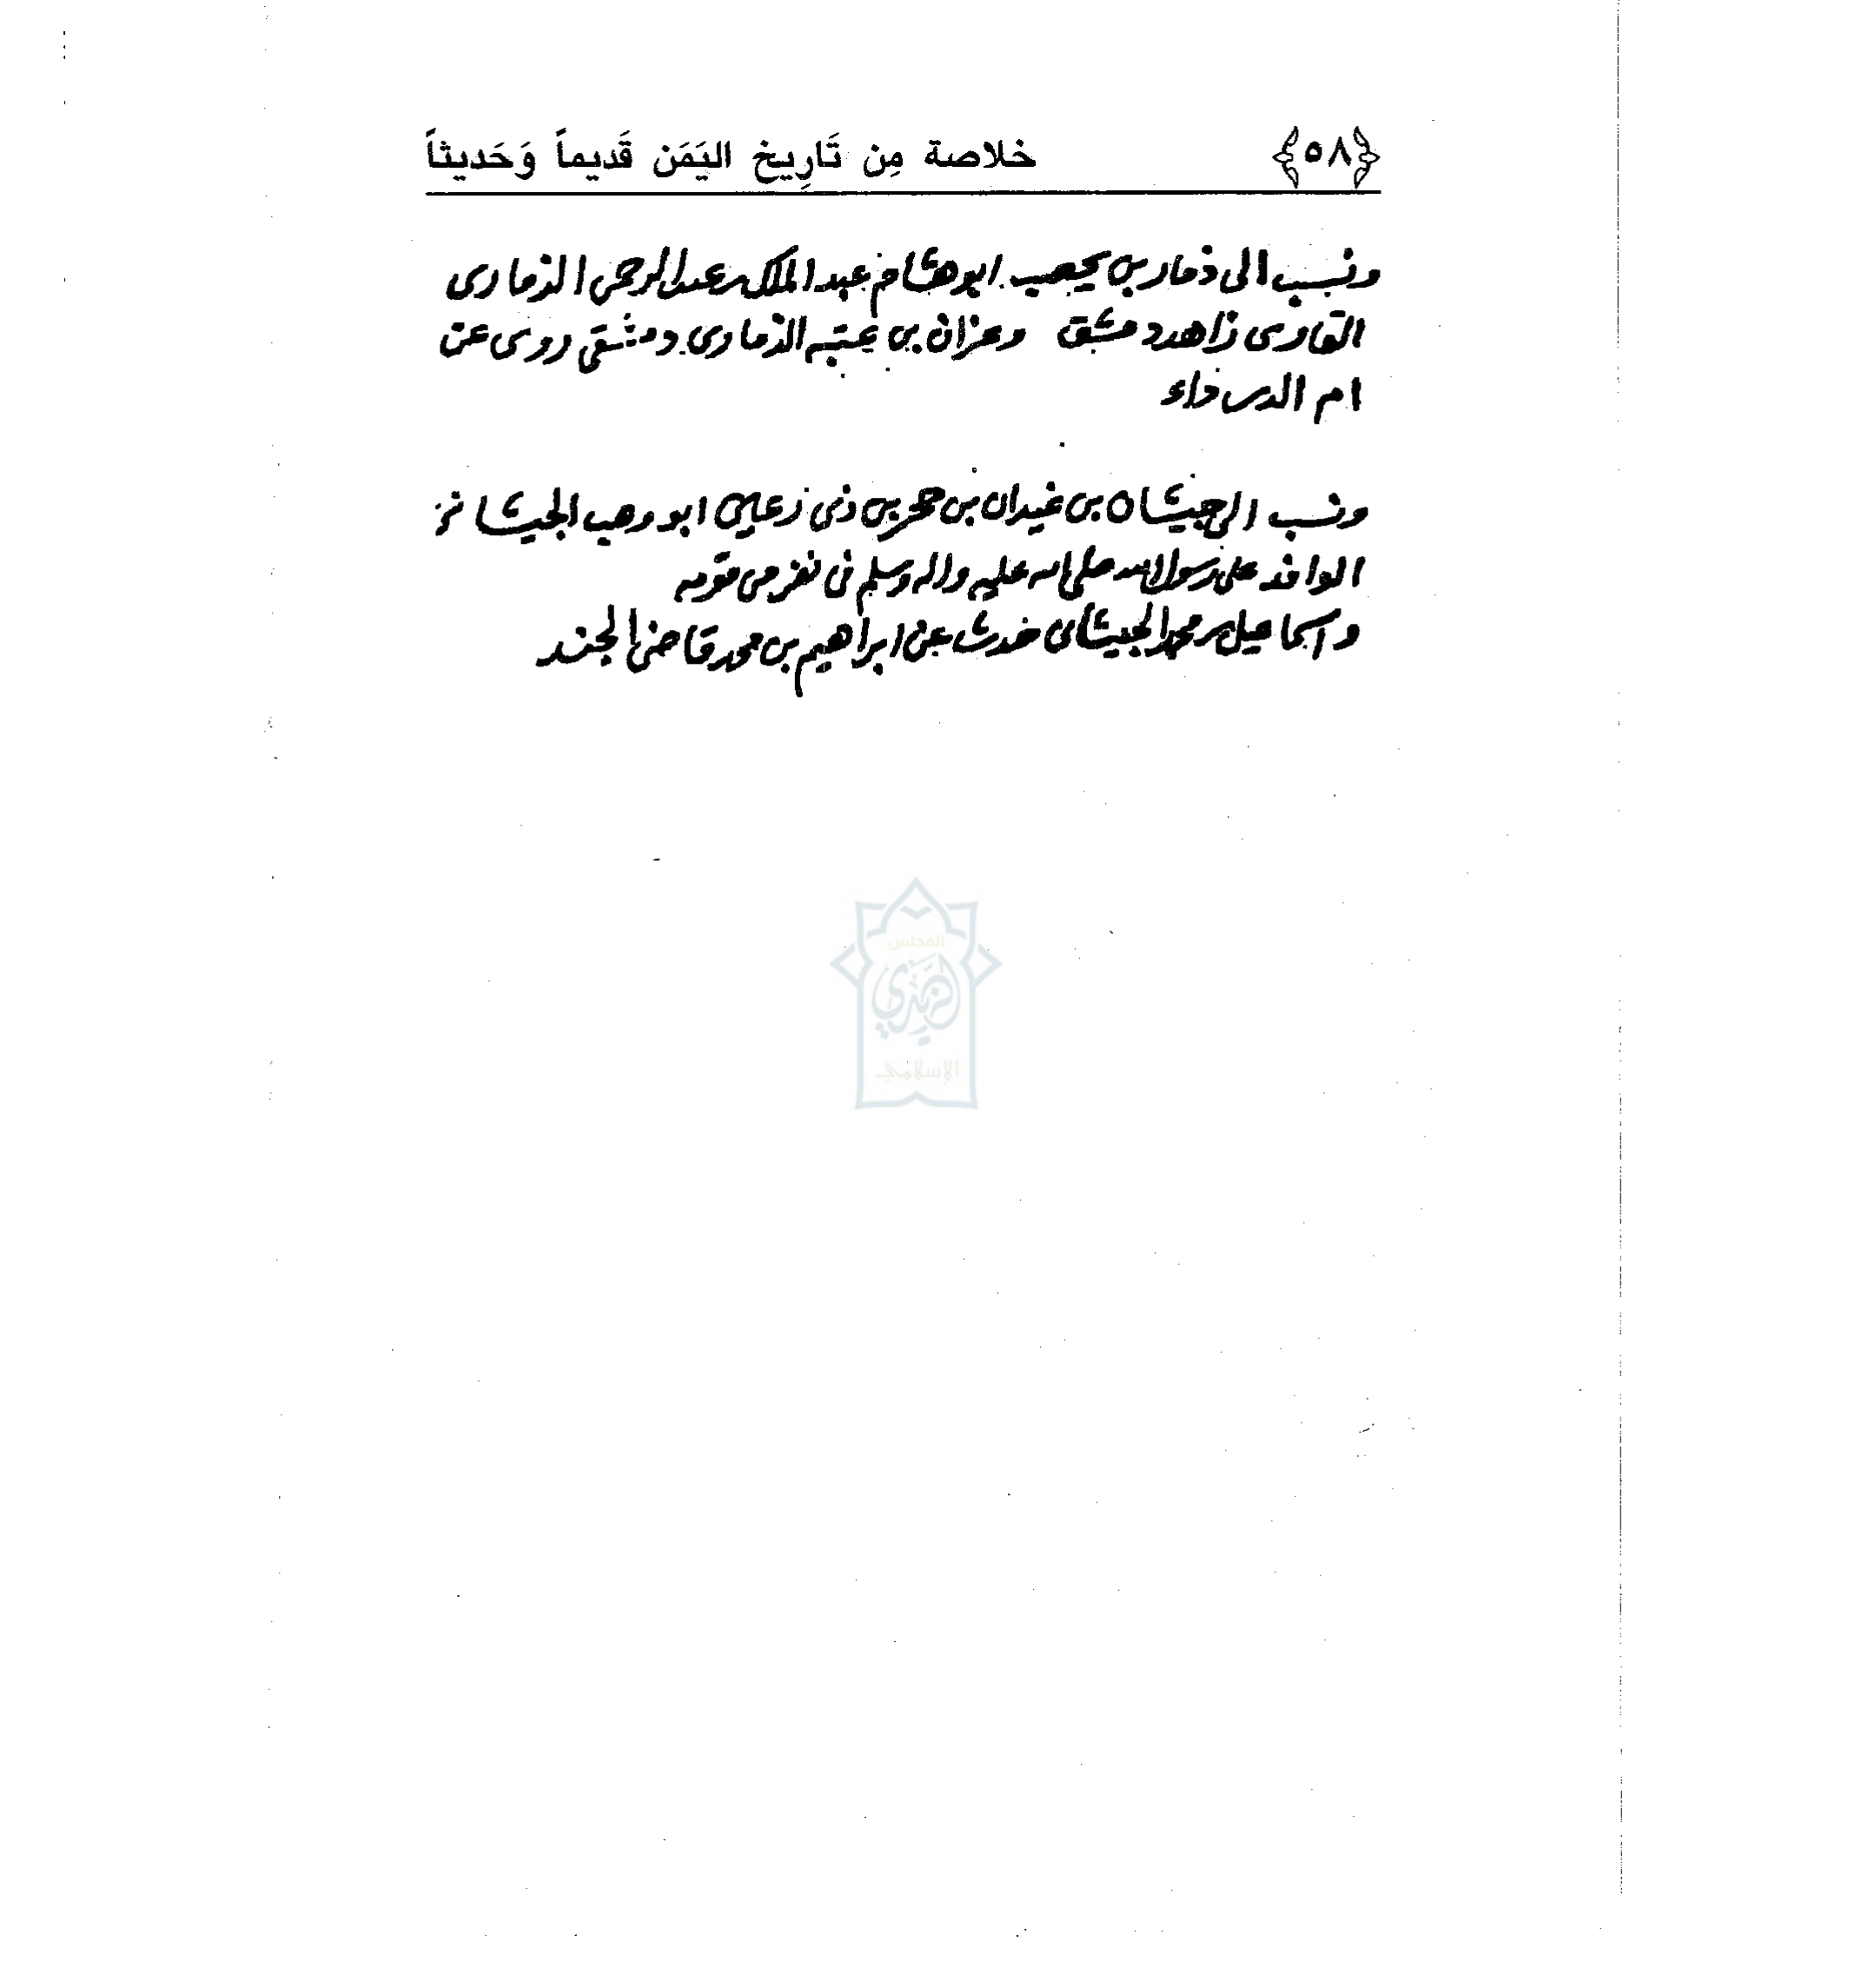 ﴿٥٨﴾ خلاصة مِن تَارِيخ اليَمَن قَديماً وَحَديثاً
ونسب الى ذمار بن يحصب ابو هشام عبد الملك بن عبد الرحمن الذمارى
القارى زاهد دمشق ومزان بن عتبه الذمارى دمشقى روى عن
ام الدرداء
ونسب الى جيشان بن غيدان بن حجر بن ذى رعين ابو وهب الجيشانى
الوافد على رسول الله صلى الله عليه واله وسلم فى نفر من قومه
واسماعيل بن محمد الجيشانى حدث عن ابراهيم بن محمد قاضى الجند
المجلس
الزيدي
الإسلامي